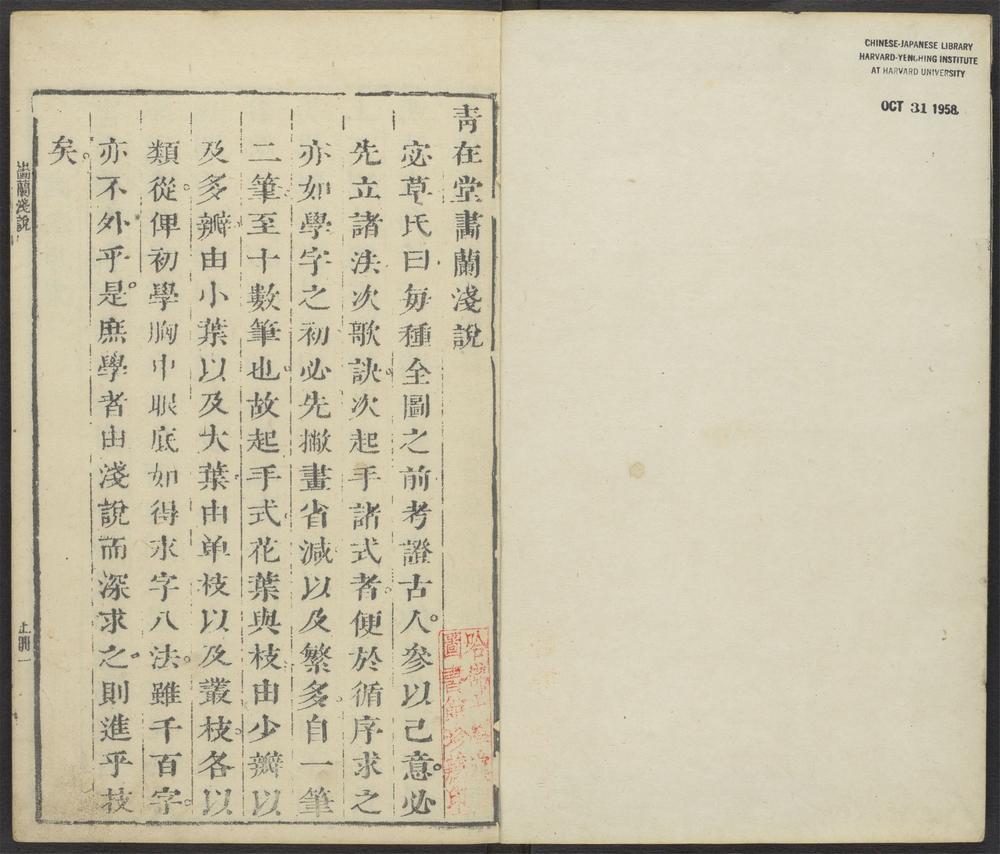 CHINESE-JAPANESE LIBRARY
HARVARD-YENCHING INSTITUTE
AT HARVARD UNIVERSITY
OCT 31 1958
青在堂畫蘭淺說
宓草氏曰每種全圖之前考證古人。參以己意。必
先立諸法次歌訣。次起手諸式者。便於循序求之
亦如學字之初。必先撇畫省減。以及繁多。自一筆
二筆至十數筆也。故起手式。花葉與枝。由少瓣以
及多瓣。由小葉以及大葉。由单枝以及叢枝。各以
類從。俾初學胸中眼底。如得永字八法。雖千百字。
亦不外乎是。庶學者由淺說而深求之。則進乎技
矣。
畫蘭淺說